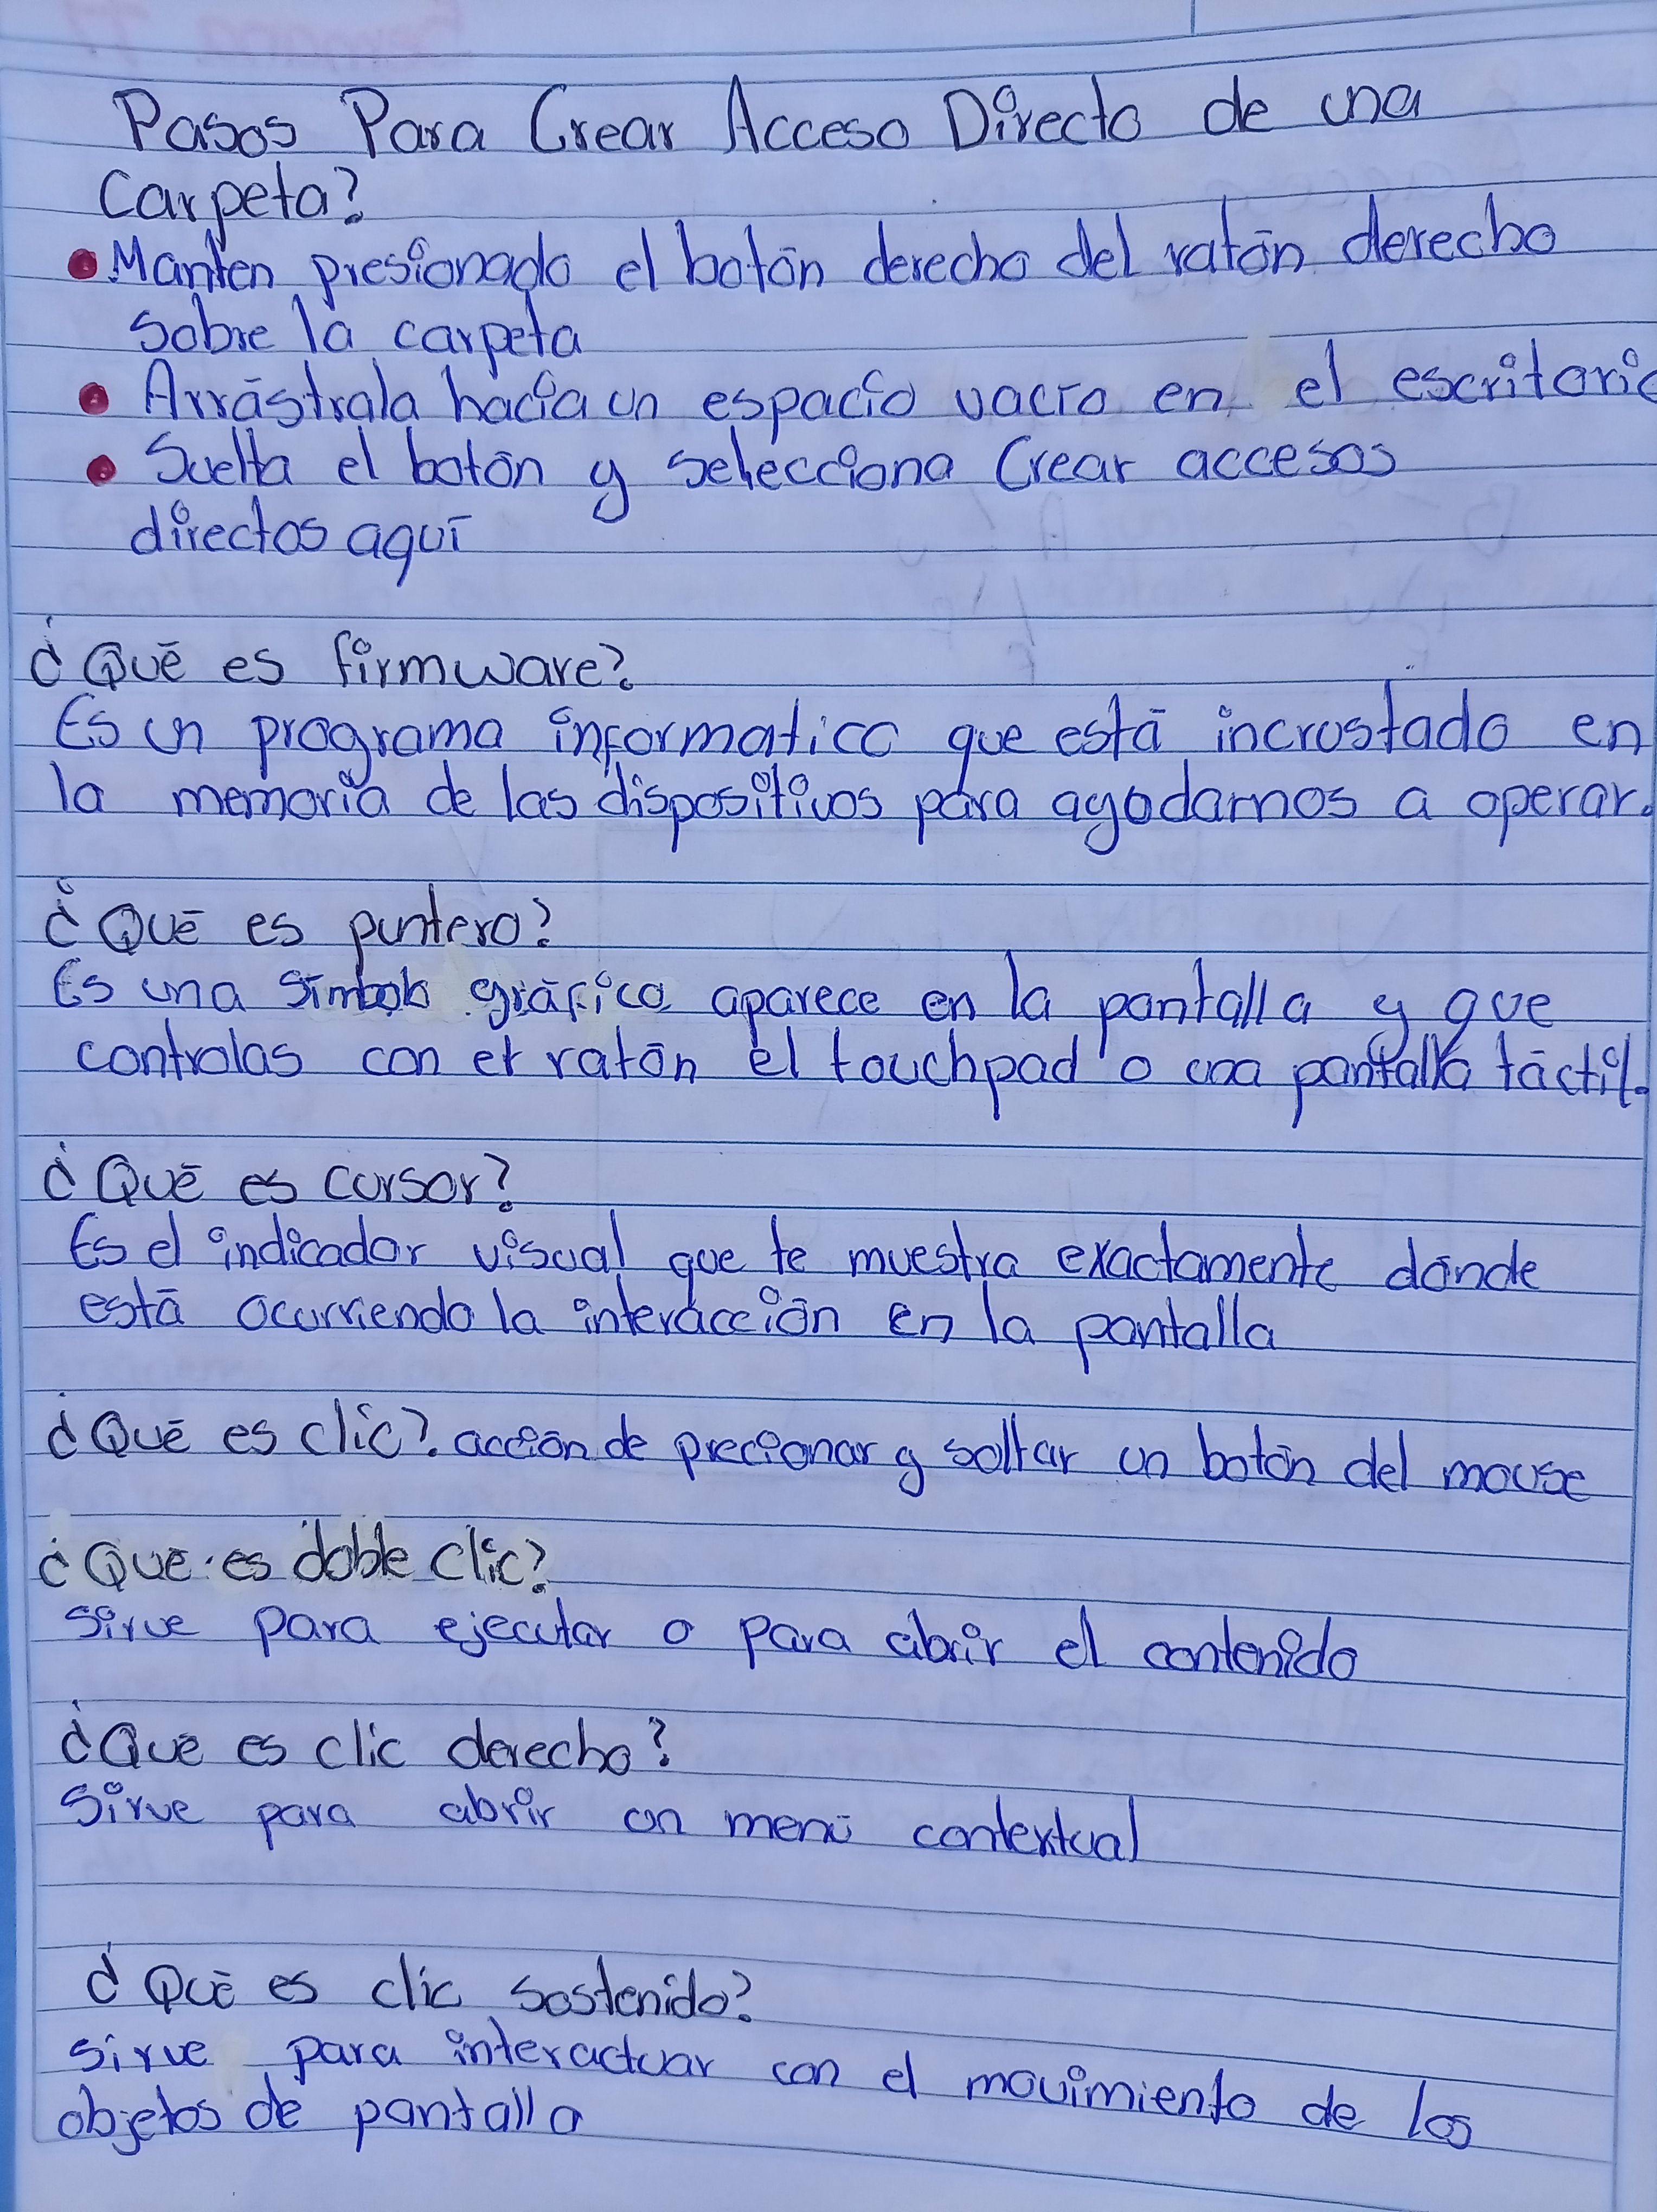 Pasos Para Crear Acceso Directo de una
Carpeta?
Manten presionado el botón derecho del ratón derecho
sobre la carpeta
Arrástrala hacia un espacio vacío en el escritorio
Suelta el botón y selecciona Crear accesos
directos aquí
¿Qué es firmware?
Es un programa informatico que está incrustado en
la memoria de las dispositivos para ayudarnos a operar.
¿Qué es puntero?
Es una símbolo gráfico aparece en la pantalla y que
controlas con el ratón el touchpad o una pantalla táctil.
¿Qué es cursor?
Es el indicador visual que te muestra exactamente dónde
está ocurriendo la interacción en la pantalla
¿Qué es clic? acción de precionar y soltar un botón del mouse
¿Que es doble clic?
sirve para ejecutar o para abrir el contenido
¿Que es clic derecho?
Sirve para abrir un menú contextual
¿Qué es clic sostenido?
sirve para interactuar con el movimiento de los
objetos de pantalla